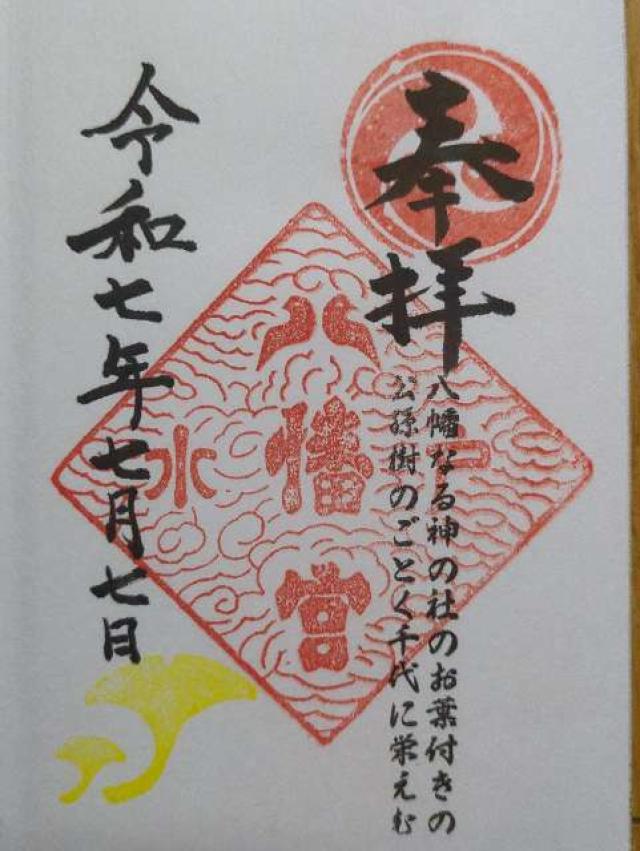 奉拝
八幡なる神の社のお葉付きの
公孫樹のごとく千代に栄えむ
水戸
八幡宮
令和七年七月七日